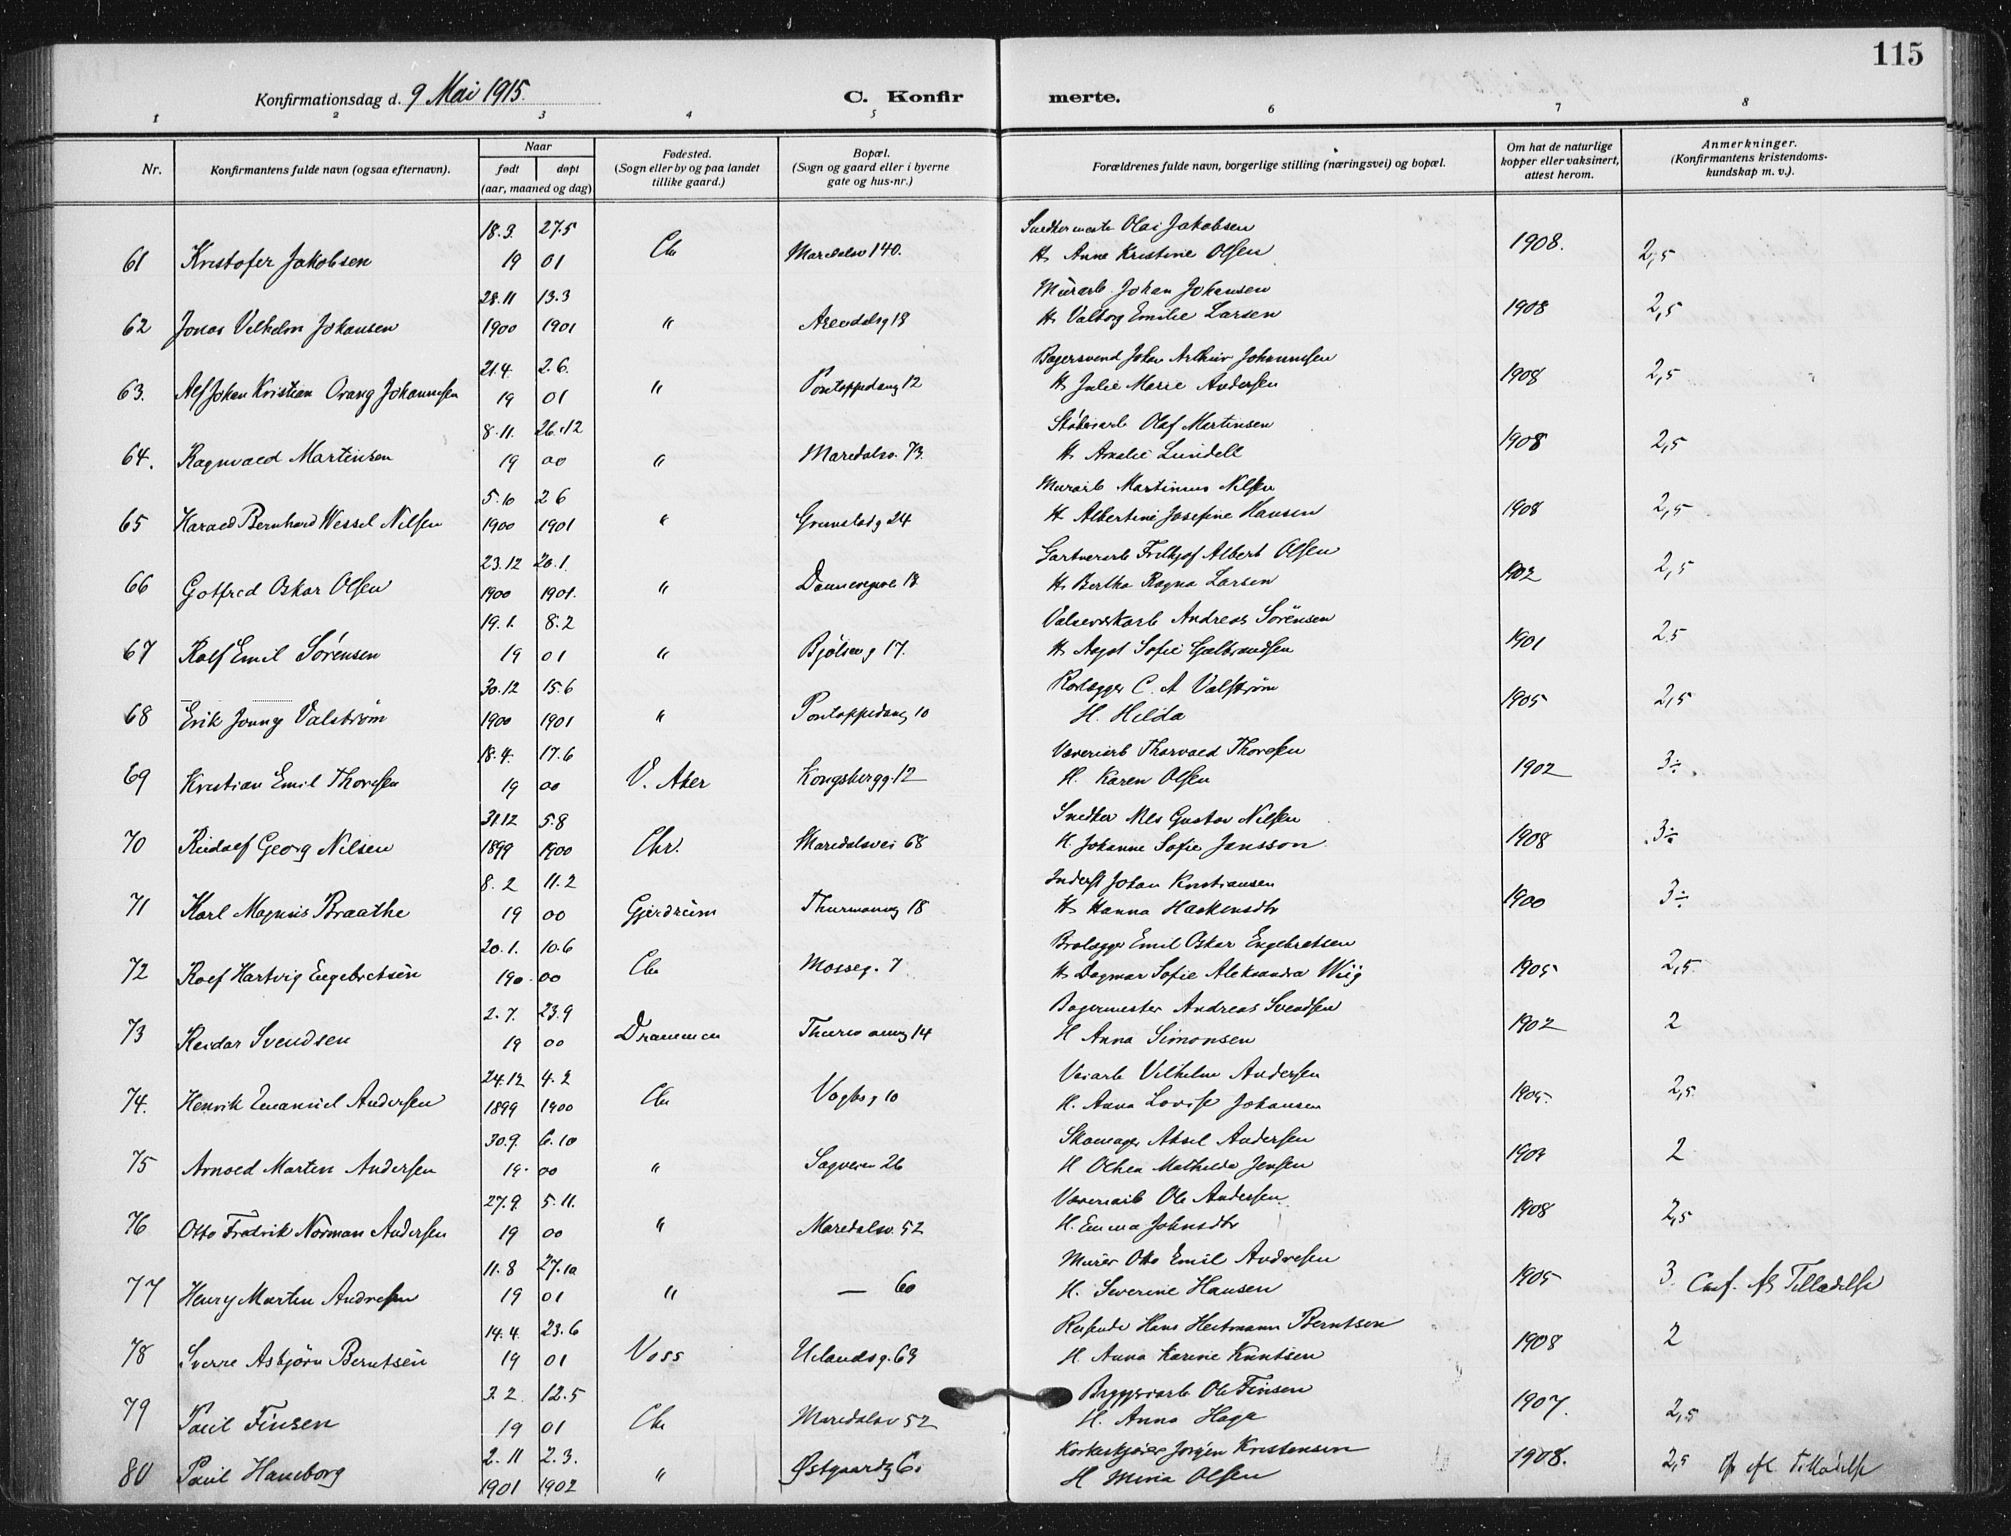 115
Konfirmationsdag d. 9 Mai 1915.
C. Konfirmerte.
1 2 3 4 5 6 7 8
Nr. Konfirmantens fulde navn (ogsaa efternavn). Naar født døpt (aar, maaned og dag) Fødested. (Sogn eller by og paa landet tillike gaard.) Bopæl. (Sogn og gaard eller i byerne gate og hus-nr.) Forældrenes fulde navn, borgerlige stilling (næringsvei) og bopæl. Om hat de naturlige kopper eller vaksinert, attest herom. Anmerkninger. (Konfirmantens kristendomskundskap m. v.).
18.3. 27.5 Snedkermester Olai Jakobsen
61 Kristofer Jakobsen 19 01 Chr Maredalsv 140. H. Anne Kristine Olsen 1908. 2,5
28.11 13.3 Murarb. Johan Johansen
62 Jonas Vilhelm Johansen 1900 1901 " Arendalsg 18 H. Valborg Emilie Larsen 1908 2,5
21.4. 2.6. Bagersvend Johan Arthur Johannesen
63. Alf Johan Kristian Orang Johannesen 19 01 " Pontoppidansg 12 H. Julie Marie Andersen 1908 2,5
8.11. 26.12 Olaf Martinsen
64. Ragnvald Martinsen 19 00 " Maredalsv. 73. H. Amalie Lundell 1908 2,5
5.10 2.6 Murarb Martinius Nilsen
65 Harald Bernhard Wessel Nilsen 1900 1901 " Grimstadg 24 H. Albertine Josefine Hansen 1908 2,5
23.12 20.1. Gartnerarb Fridtjof Albert Olsen
66 Gotfred Oskar Olsen 1900 1901. " Dannevigsv. 18 H. Bertha Ragna Larsen 1902 2,5
19.1. 8.2 Valseverkarb Andreas Sørensen
67 Rolf Emil Sørensen 19 01 " Bjølseng 17. H. Aagot Sofie Gulbrandsen 1901 2.5
30.12 15.6 Rørlægger C. A Valstrøm
68 Erik Jonny Valstrøm 1900 1901 " Pontoppidansg 10 H. Hilda 1905 2,5
18.4. 17.6 Væveriarb Thorvald Thoresen
69 Kristian Emil Thoresen 19 00 V. Aker Kongsbergg. 12 H. Karen Olsen 1902 3÷
31.12 5.8 Snedker Nils Gustav Nilsen
70 Rudolf Georg Nilsen 1899 1900 Chr. Maredalsvei 68 H. Johanne Sofie Jansson 1908 3÷
8.2 11.2 Inderst Johan Kristiansen
71 Karl Magnus Braathe 19 00 Gjerdrum Thurmannsg 18 H. Hanna Haakensdtr 1900 3÷
20.1. 10.6 Brolægger Emil Oskar Engebretsen
72 Rolf Hartvig Engebretsen 190. 00 Chr Mosseg. 7 H. Dagmar Sofie Aleksandra Wiig 1905 2,5.
2.7. 23.9 Bagermester Andreas Svendsen
73 Reidar Svendsen 19 00 Drammen Thurmannsg 14 H Anna Simonsen 1902 2
24.12 4.2 Veiarb Vilhelm Andersen
74. Henrik Emanuel Andersen 1899 1900 Chr Vogtsg 10 H. Anna Lovise Johansen 1905. 2,5.
30.9. 6.10 Skomager Aksel Andersen
75 Arnold Martin Andersen 19. 00 " Sagveien 26 H Olhea Mathilda Jensen 2
27.9. 5.11. Væveriarb Ole Andersen.
76 Otto Fredrik Norman Andersen 19 00 " Maredalsv. 52 H. Emma Johnsdtr 1908 2,5
11.8 27.10 Murer Otto Emil Andresen
77 Henry Martin Andresen 19 01 " — 60 H. Severine Hansen 1905 3. Conf. eft Tilladelse
14.4. 23.6 Reisende Hans Heitmann Berntsen
78 Sverre Asbjørn Berntsen 19 01 Voss Uelandsg. 63 H. Anna Karine Knutsen 1908 2
3.2. 12.5 Ole Finsen
79 Paul Finsen 19 01 Chr Maredalsv 52 H. Anna Haga 1907. 2,5
2.11 2.3. Korkeskjærer Jørgen Kristensen
80 Paul Hamborg 1901 1902 " Østgaardsg 6. H Mina Olsen 1908. 2,5 eft Tilladelse